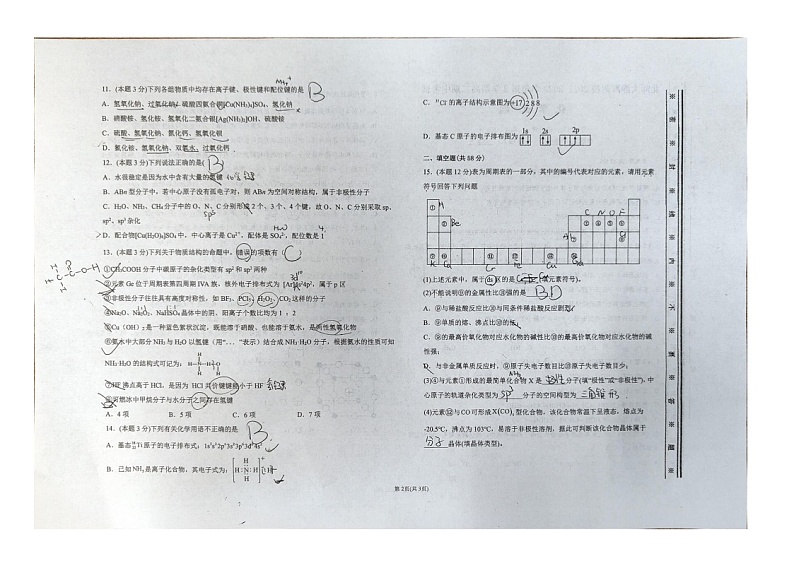 11. (本题 3 分)下列各组物质中均存在离子键、极性键和配位键的是 B
A. 氢氧化钠、过氧化钠、硫酸四氨合铜[Cu(NH₃)₄]SO₄、氢化钠
B. 硝酸铵、氢化铵、氢氧化二氨合银[Ag(NH₃)₂]OH、硫酸铵
C. 硫酸、氢氧化钠、氮化钙、氢氧化银
D. 氯化铵、氢氧化钠、双氧水、过氧化钙
12. (本题 3 分)下列说法正确的是( B )
A. 水很稳定是因为水中含有大量的氢键
B. ABn 型分子中，若中心原子没有孤电子对，则 ABn 为空间对称结构，属于非极性分子
C. H₂O、NH₃、CH₄分子中的 O、N、C 分别形成 2 个、3 个、4 个键，故 O、N、C 分别采取 sp、
sp²、sp³杂化
D. 配合物[Cu(H₂O)₄]SO₄中，中心离子是 Cu²⁺，配体是 SO₄²⁻，配位数是 1
13. (本题 3 分)下列关于物质结构的命题中，错误的项数有( C
①CH₃COOH 分子中碳原子的杂化类型有 sp² 和 sp³ 两种
②元素 Ge 位于周期表第四周期 IVA 族，核外电子排布式为 [Ar]4s²4p²，属于 p 区
③非极性分子往往具有高度对称性，如 BF₃、PCl₅、H₂O₂、CO₂这样的分子
④Na₂O、Na₂O₂、NaHSO₄晶体中的阴、阳离子个数比均为 1：2
⑤Cu（OH）₂是一种蓝色絮状沉淀，既能溶于硝酸、也能溶于氨水，是两性氢氧化物
⑥氨水中大部分 NH₃与 H₂O 以氢键（用“…”表示）结合成 NH₃·H₂O 分子，根据氨水的性质可知
NH₃·H₂O 的结构式可记为：
⑦HF 沸点高于 HCl，是因为 HCl 共价键键能小于 HF
⑧可燃冰中甲烷分子与水分子之间存在氢键
A. 4 项 B. 5 项 C. 6 项 D. 7 项
14. (本题 3 分)下列有关化学用语不正确的是 B
A. 基态₂₂Ti 原子的电子排布式：1s²2s²2p⁶3s²3p⁶3d²4s²
B. 已知 NH₅是离子化合物，其电子式为：
第 2页(共 3页)
C. ³⁷Cl⁻的离子结构示意图为 +17 2 8 8
D. 基态 C 原子的电子排布图为 1s 2s 2p
二、填空题(共 58 分)
15. (本题 12 分)表为周期表的一部分，其中的编号代表对应的元素，请用元素
符号回答下列问题
H
Be C N O F
Al Cl
K Ca Cr Fe Cu Ga
(1)上述元素中，属于 ds 区的是 (填元素符号)。
(2)不能说明⑪的金属性比⑩强的是 BD
A. ⑨与稀盐酸反应比⑩与同条件稀盐酸反应剧烈
B. ⑨单质的熔、沸点比⑩的低
C. ⑨的最高价氧化物对应水化物的碱性比⑩的最高价氧化物对应水化物的碱
性强；
D. 与非金属单质反应时，⑨原子失电子数目比⑩原子失电子数目少；
(3)④与元素①形成的最简单化合物 X 是 极性 分子(填“极性”或“非极性”)，中
心原子的轨道杂化类型为 sp³ 分子的空间构型为 三角锥形
(4)元素⑫与 CO 可形成 X(CO)₅ 型化合物，该化合物常温下呈液态，熔点为
-20.5℃，沸点为 103℃，易溶于非极性溶剂，据此可判断该化合物晶体属于
分子 晶体(填晶体类型)。